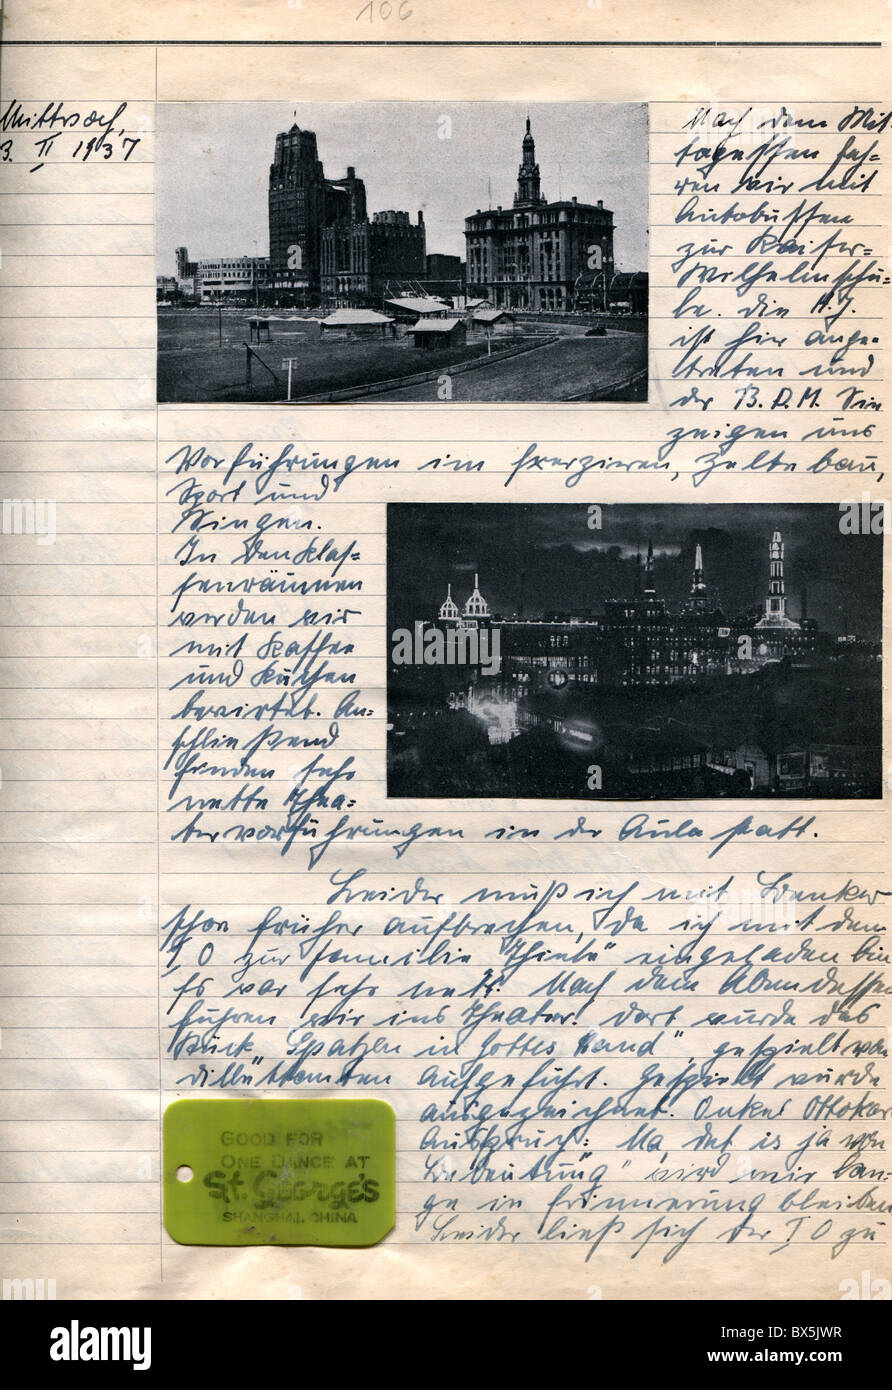 106
Mittwoch,
3. II 1937
Nach dem Mit
tagessen fah=
ren wir mit
Autobussen
zur Kaiser=
Wilhelmschu=
le. Die H.J.
ist hier ange=
treten und
der B.D.M. Sie
zeigen uns
Vorführungen im Exerzieren, Zeltebau,
Sport und
Singen.
In den Klas=
senräumen
werden wir
mit Kaffee
und Kuchen
bewirtet. An=
schließend
finden sehr
nette Thea=
tervorführungen in der Aula statt.
Leider muß ich mit
schon früher aufbrechen, da ich mit dem
I O zur Familie "Thiele" eingeladen bin
Es war sehr nett. Nach dem Abendessen
fuhren wir ins Theater. Dort wurde das
Stück "Spatzen in Gottes Hand", gespielt von
dillettanten aufgeführt. Gespielt wurde
ausgezeichnet. Onkel Ottokar
Ausspruch: "Na, det is ja von
Bedeutung" wird mir lan=
ge in Erinnerung bleiben
Leider ließ sich der I O zu
GOOD FOR
ONE DANCE AT
St. GEORGE'S
SHANGHAI, CHINA
alamy
Image ID: BX5JWR
www.alamy.com